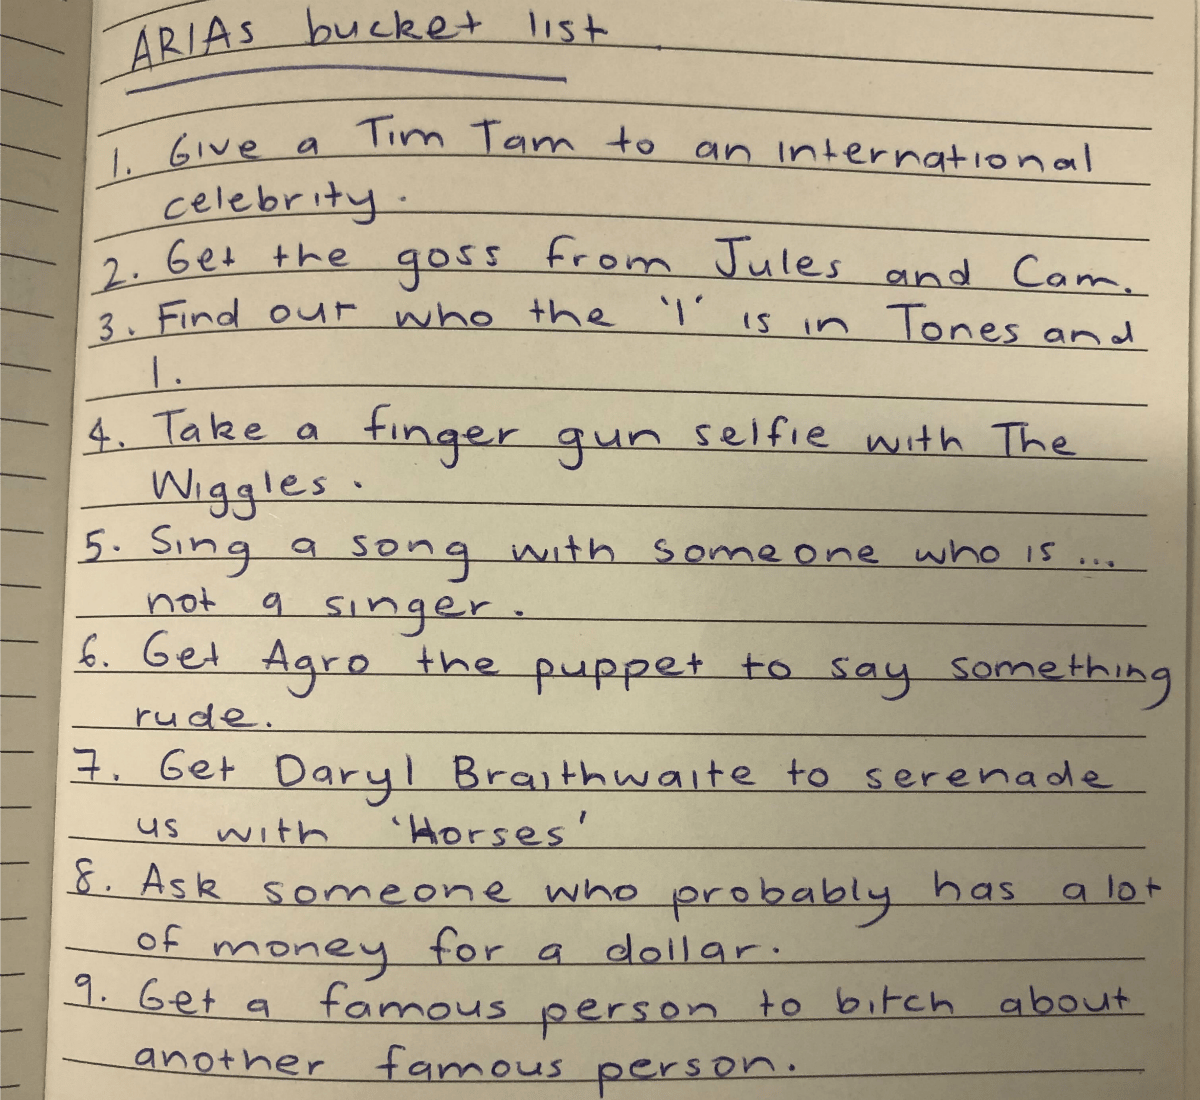 ARIAs bucket list
1. Give a Tim Tam to an international
celebrity.
2. Get the goss from Jules and Cam.
3. Find out who the 'I' is in Tones and
I.
4. Take a finger gun selfie with The
Wiggles.
5. Sing a song with someone who is ...
not a singer.
6. Get Agro the puppet to say something
rude.
7. Get Daryl Braithwaite to serenade
us with 'Horses'
8. Ask someone who probably has a lot
of money for a dollar.
9. Get a famous person to bitch about
another famous person.